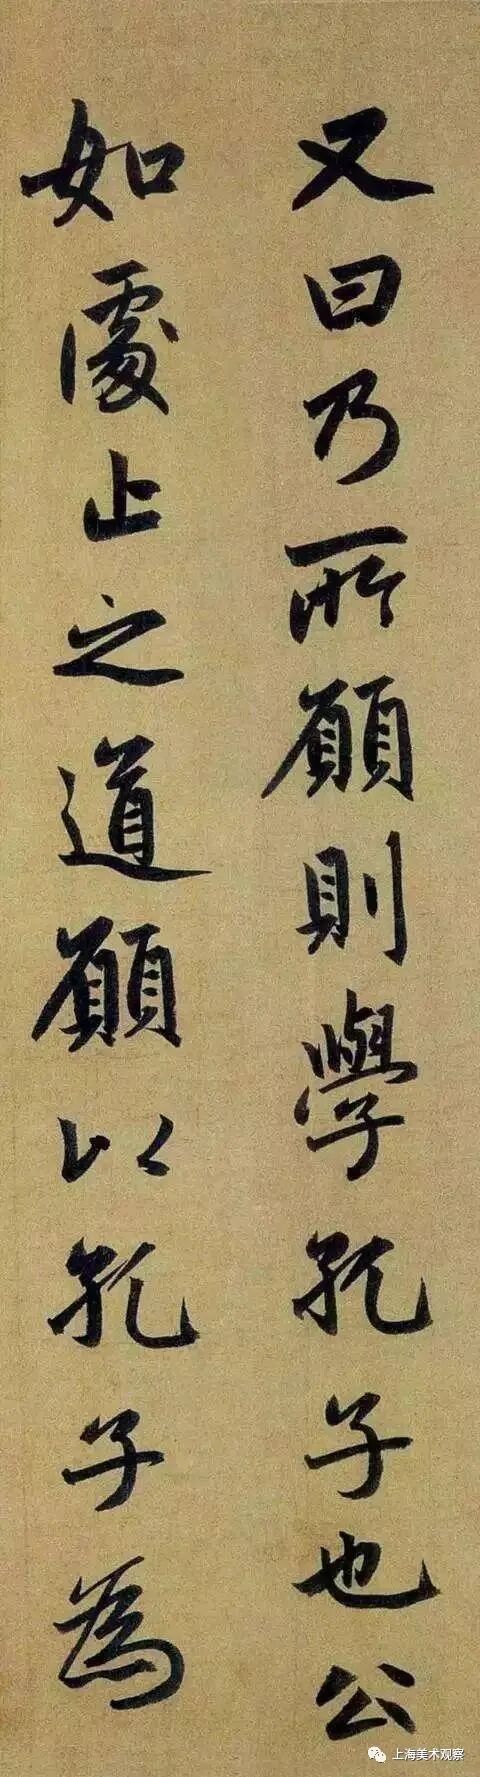 又曰乃所願則學孔子也公
如處止之道願以孔子為
上海美术观察